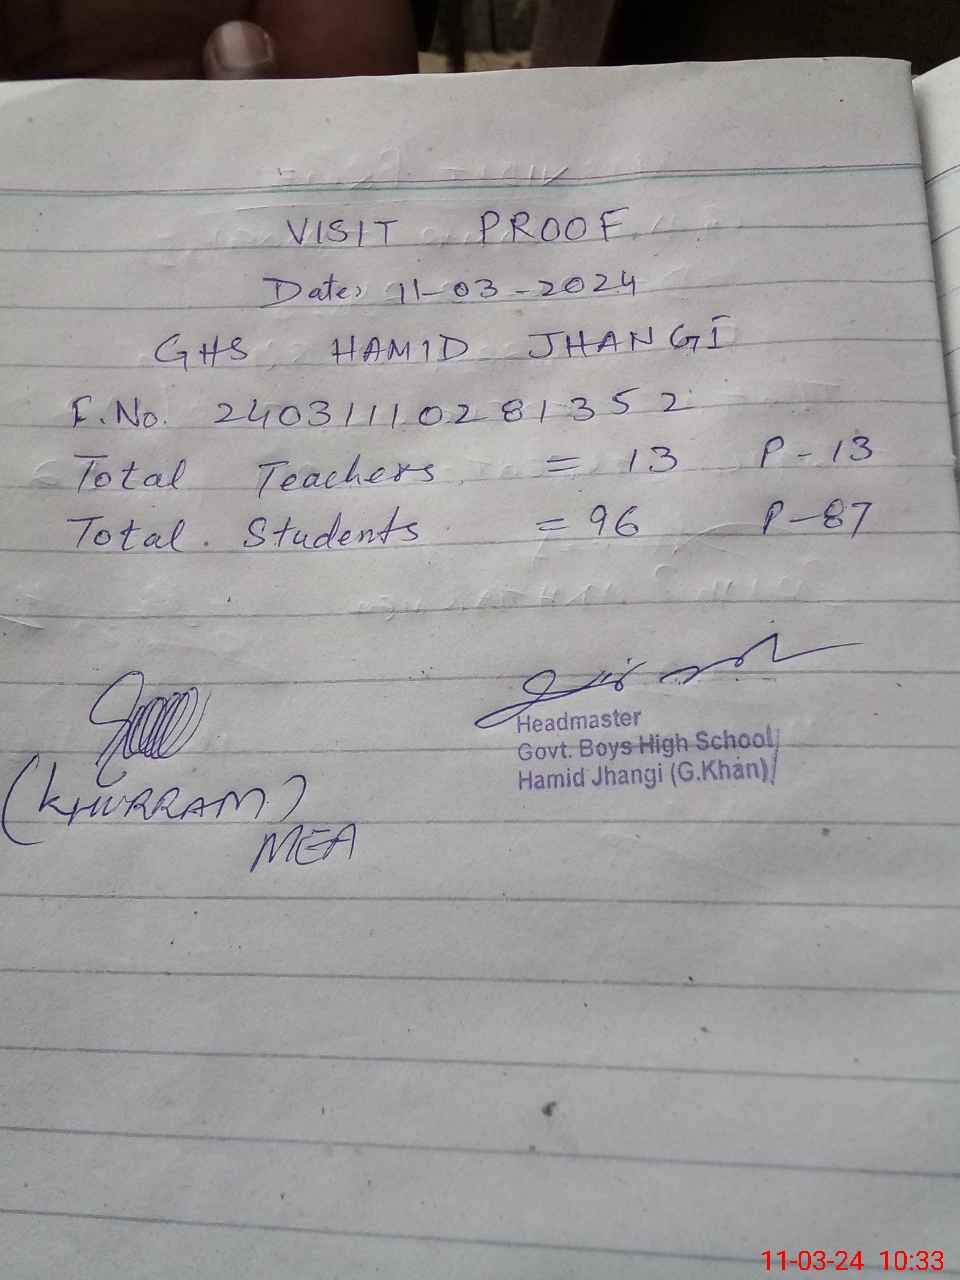 VISIT PROOF
Date: 11-03-2024
GHS HAMID JHANGI
F.No. 24031110281352
Total Teachers = 13 P-13
Total Students = 96 P-87
Headmaster
Govt. Boys High School
Hamid Jhangi (G.Khan)
(KHURRAM)
MEA
11-03-24 10:33